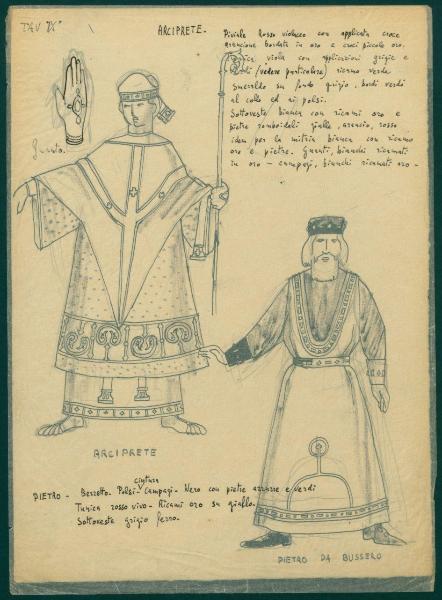 TAV IX°
ARCIPRETE.
Piviale Rosso violaceo con applicata croce
arancione bordata in oro e croci piccole oro.
viola con applicazioni grigie e
(vedere particolare) ricamo verde
smeraldo su fondo grigio, bordi verdi
al collo ed ai polsi.
Sottoveste bianca con ricami oro e
pietre romboidali gialle, arancio, rosso
idem per la mitria bianca con ricamo
oro e pietre. Guanti, bianchi ricamati
in oro - campagi, bianchi ricamati oro -
Guanto.
ARCIPRETE
cintura
PIETRO - Berretto. Polsi - campagi - Nero con pietre azzurre e verdi
Tunica rosso vivo - Ricami oro su giallo.
Sottoveste grigio ferro.
PIETRO DA BUSSERO